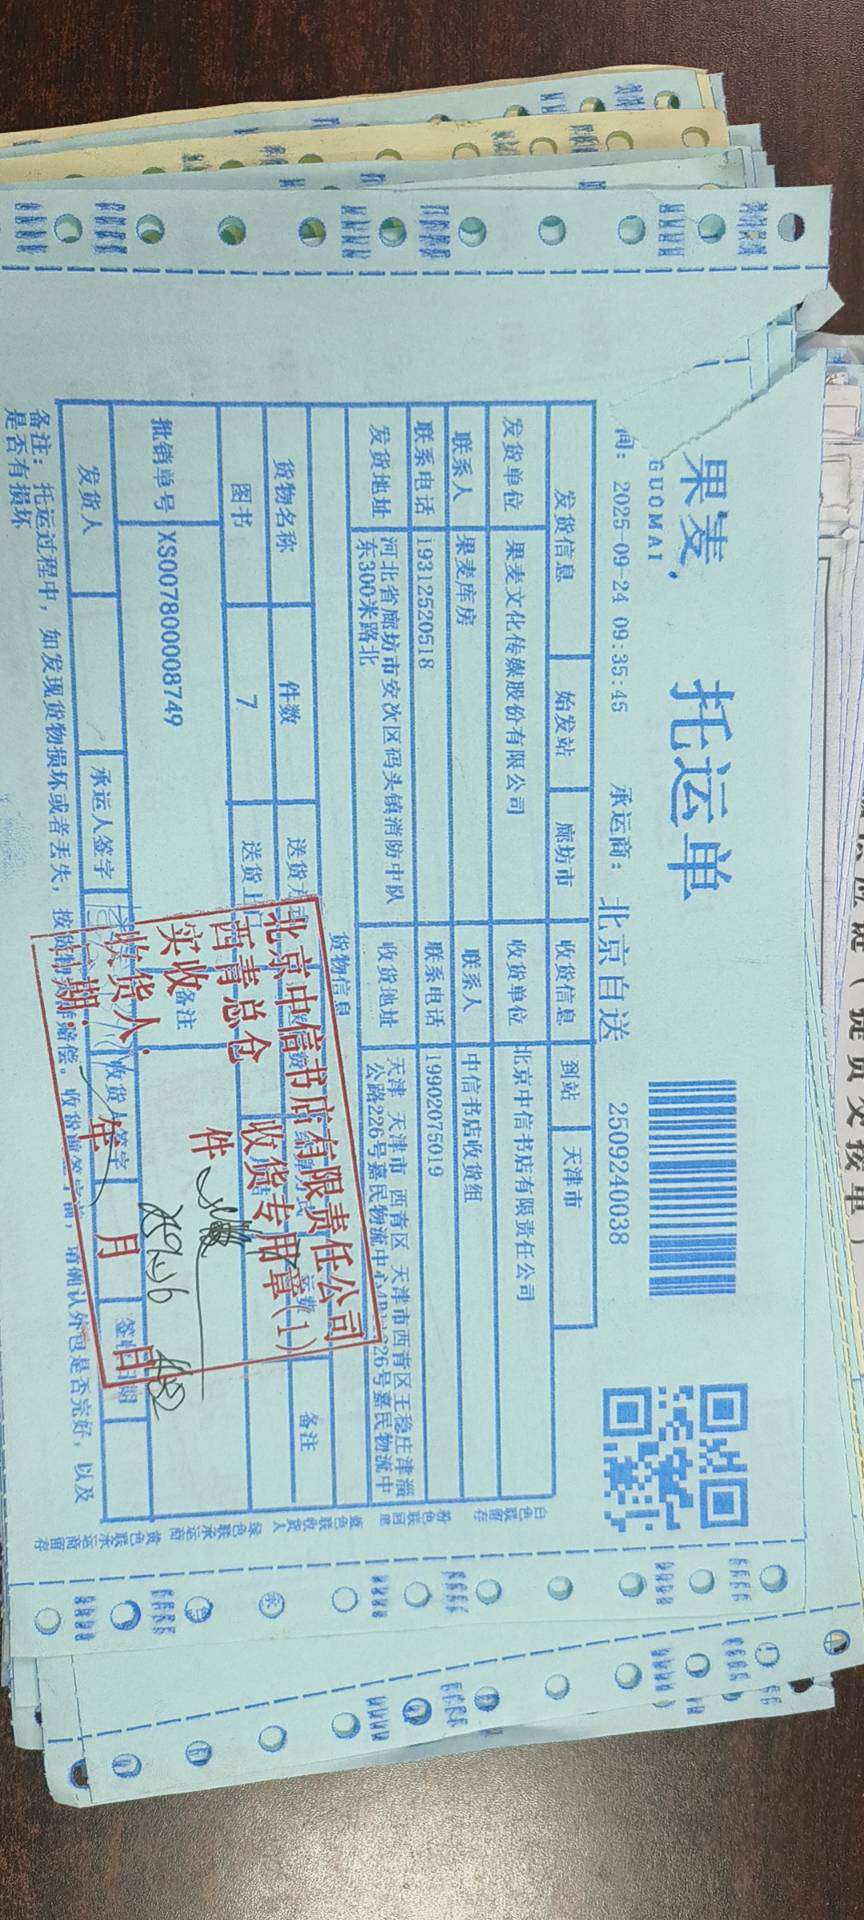 果麦
GUOMAI
托运单
间: 2025-09-24 09:35:45 承运商: 北京自送 2509240038
发货信息 始发站 廊坊市 收货信息 到站 天津市
发货单位 果麦文化传媒股份有限公司 收货单位 北京中信书店有限责任公司
联系人 果麦库房 联系人 中信书店收货组
联系电话 19312520518 联系电话 19902075019
发货地址 河北省廊坊市安次区码头镇消防中队
东300米路北
收货地址 天津 天津市 西青区 天津市西青区王稳庄津淄
公路226号嘉民物流中心 226号嘉民物流中
货物信息
货物名称 件数 送货方式 备注
图书 7 送货上门
批销单号 XS007800008749 备注
发货人 承运人签字 收货人签字 签收日期
备注: 托运过程中, 如发现货物损坏或者丢失, 按 赔偿。收货 签字前, 请确认外包是否完好, 以及
是否有损坏
北京中信书店有限责任公司
西青总仓 收货专用章(1)
实收 件
收货人:
期: 年 月 日
白色联留存 粉色联回单 蓝色联收货人 绿色联承运商 黄色联承运商留存